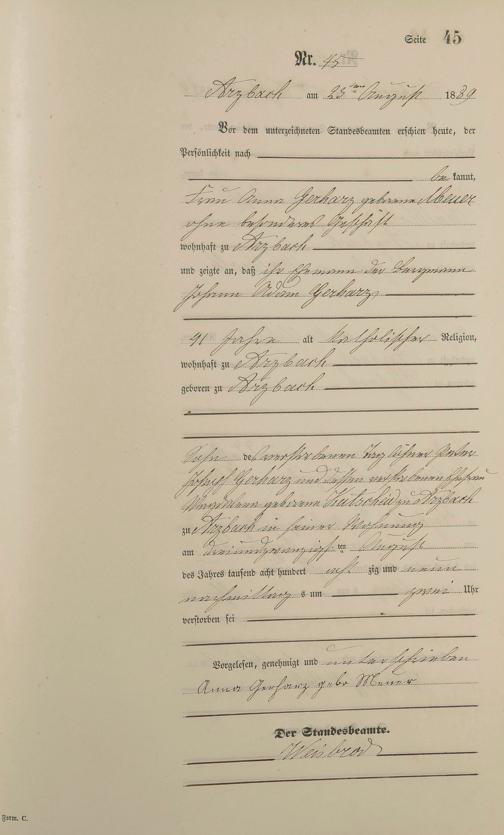 Seite 45
Nr. 45
Arzbach am 23ten August 1889
Vor dem unterzeichneten Standesbeamten erschien heute, der
Persönlichkeit nach
be kannt,
Frau Anna Gerharz geborene Meuer
ohne besonderes Geschäft
wohnhaft zu Arzbach
und zeigte an, daß ihr Ehemann der Bergmann
Johann Adam Gerharz
41 Jahre alt katholischer Religion,
wohnhaft zu Arzbach
geboren zu Arzbach
Sohn des verstorbenen Tagelöhner Peter
Joseph Gerharz und dessen verstorbenen Ehefrau
geborene Kutscheid zu Arzbach
zu Arzbach in seiner Wohnung
am dreiundzwanzigsten August
des Jahres tausend acht hundert acht zig und neun
nachmittags um zwei Uhr
verstorben sei
Vorgelesen, genehmigt und unterschrieben
Anna Gerharz geb Meuer
Der Standesbeamte.
Weisbrod
Form. C.